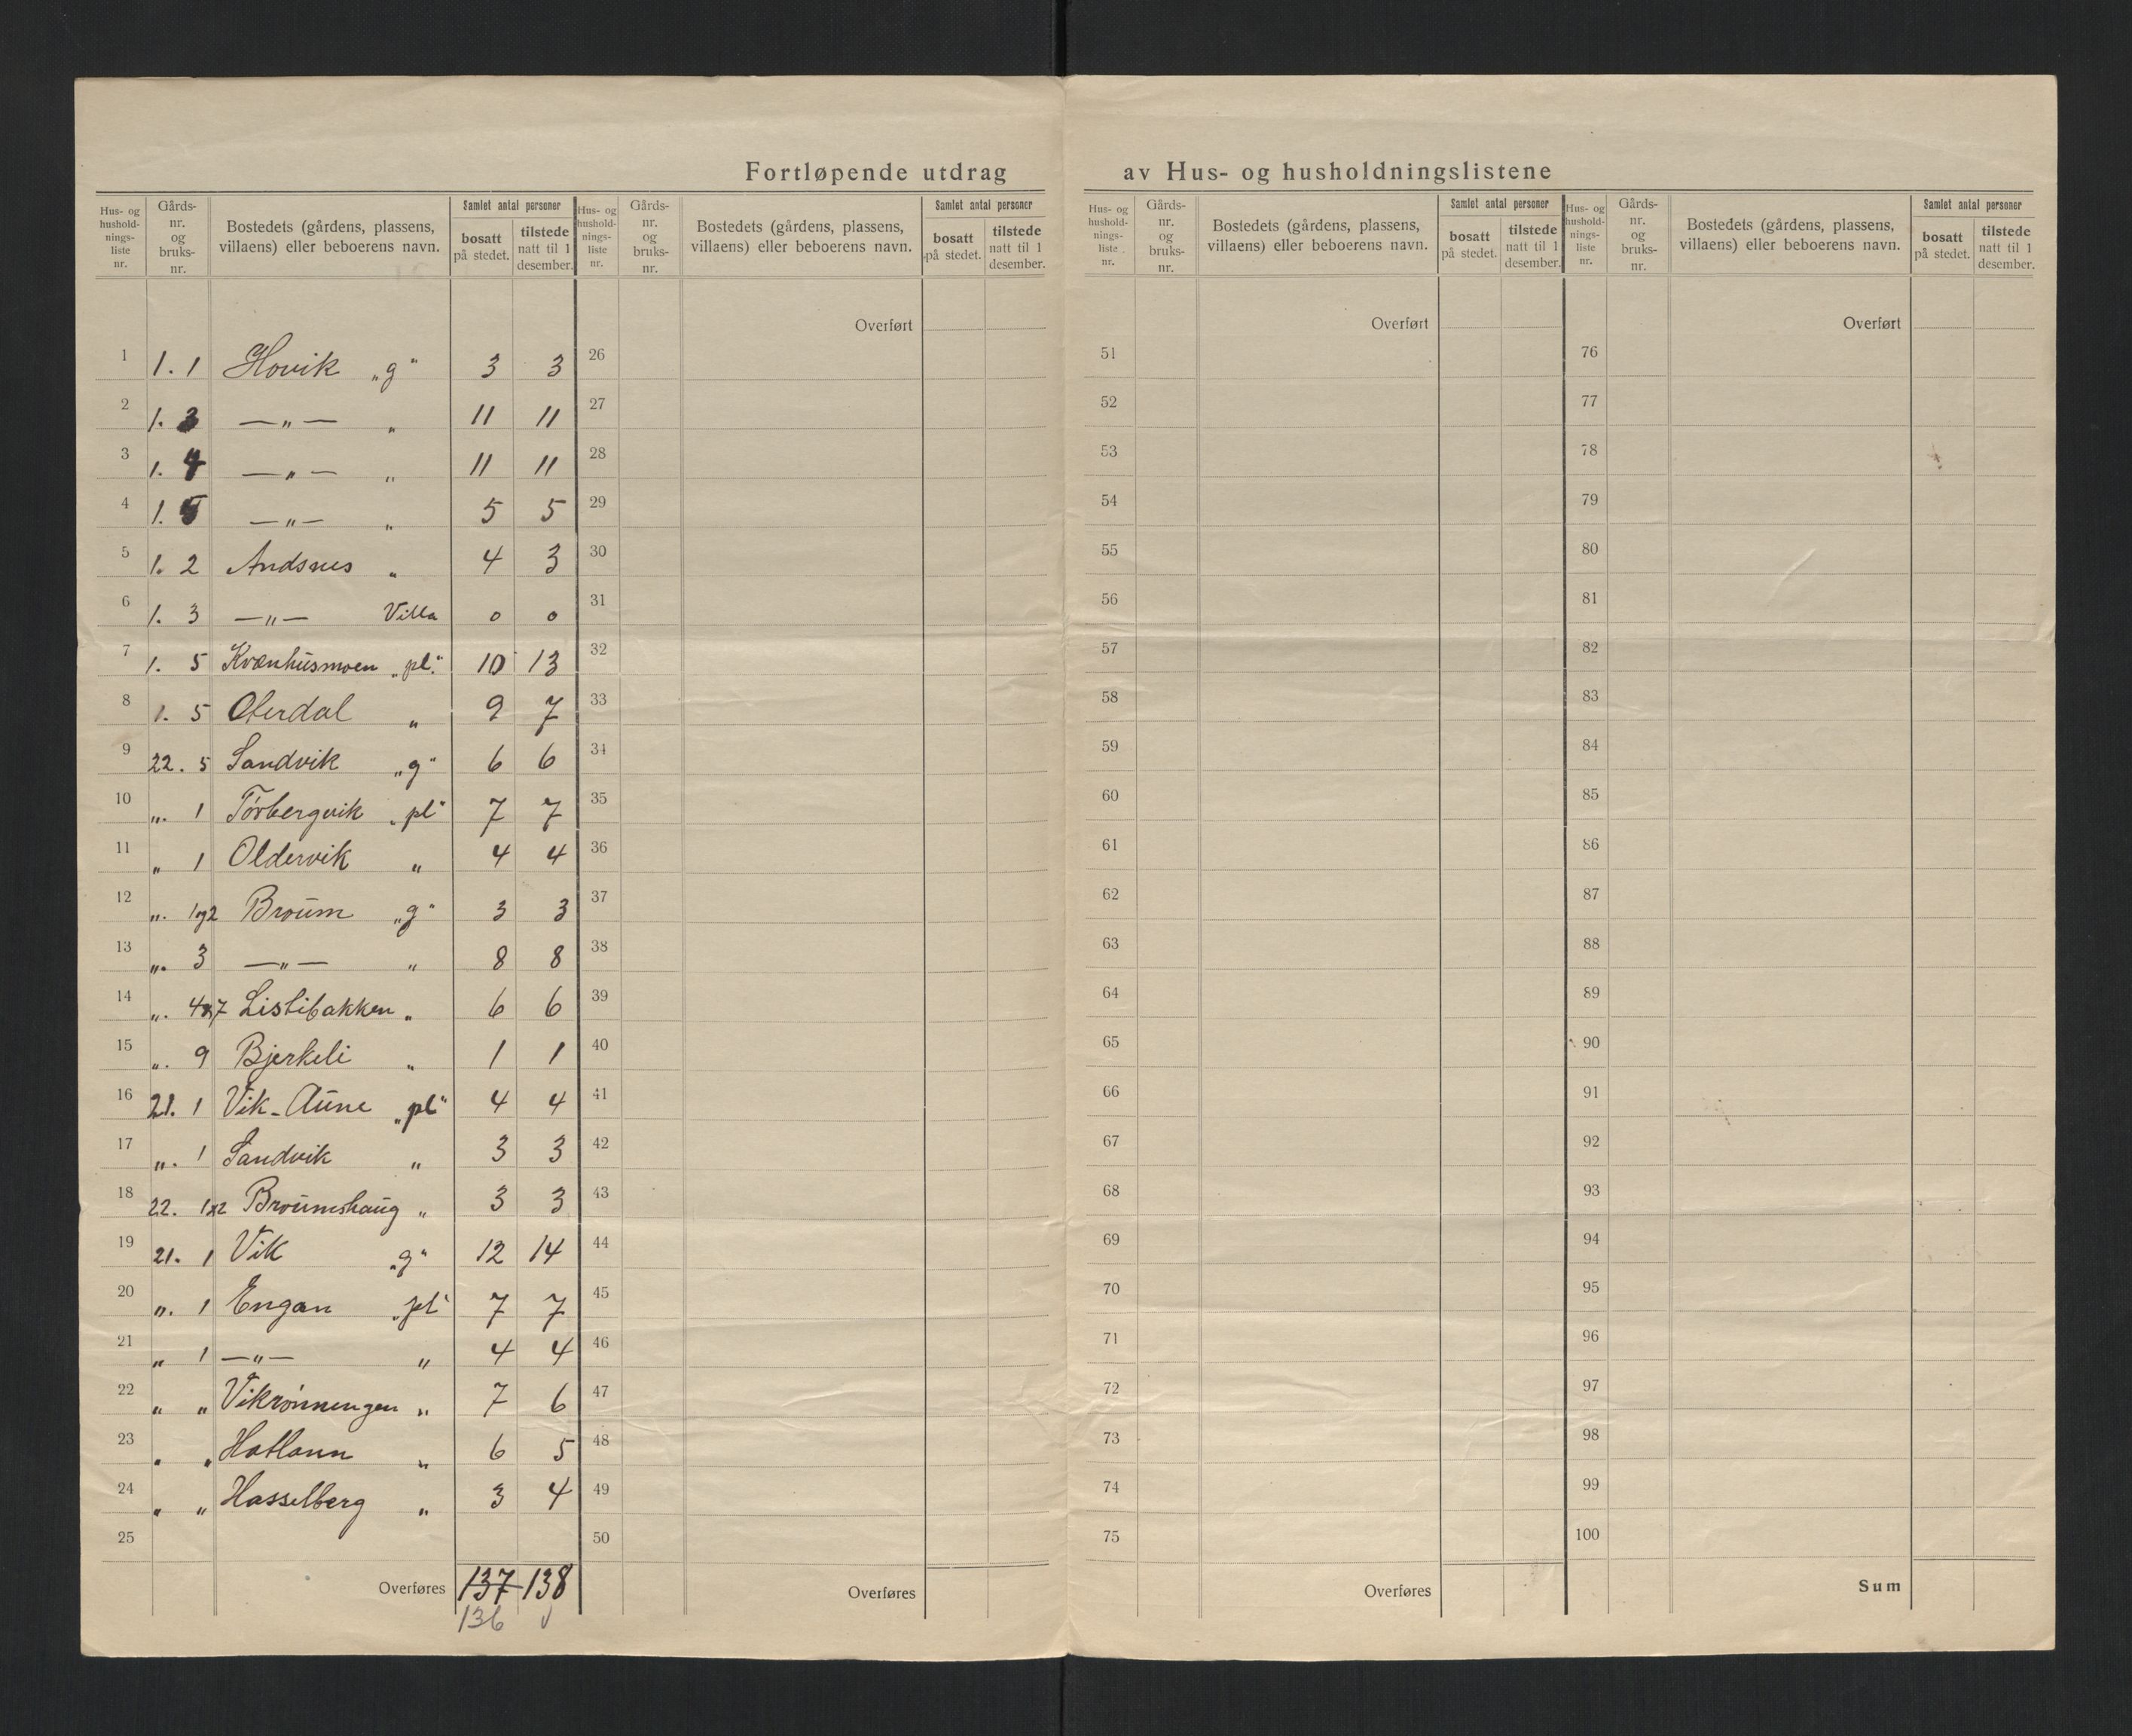 Fortløpende utdrag av Hus- og husholdningslistene
Hus- og hushold- nings- liste nr. Gårds- nr. og bruks- nr. Bostedets (gårdens, plassens, villaens) eller beboerens navn. Samlet antal personer bosatt på stedet. tilstede natt til 1 desember.
1 1. 1 Hovik „g" 3 3
2 1. 3 —„— „ 11 11
3 1. 4 —„— „ 11 11
4 1. 5 —„— „ 5 5
5 1. 2 Andsnes „ 4 3
6 1. 3 —„— Villa 0 0
7 1. 5 Kvænhusmoen „pl." 10 13
8 1. 5 Oterdal „ 9 7
9 22. 5 Sandvik „g" 6 6
10 „. 1 Torbergvik „pl" 7 7
11 „ 1 Oldervik „ 4 4
12 „. 1og2 Broum „g" 3 3
13 „. 3 —„— „ 8 8
14 „. 4 7 Listibakken „ 6 6
15 „. 9 Bjerkeli „ 1 1
16 21. 1 Vik-Aune „pl" 4 4
17 „. 1 Sandvik „ 3 3
18 22. 1 2 Broumshaug „ 3 3
19 21. 1 Vik „g" 12 14
20 „. 1 Engan „pl" 7 7
21 „ 1 —„— „ 4 4
22 „ „ Vikrønningen „ 7 6
23 „ „ Hatlann „ 6 5
24 „ „ Hasselberg „ 3 4
25
Overføres 137 138
136 √
Hus- og hushold- nings- liste nr. Gårds- nr. og bruks- nr. Bostedets (gårdens, plassens, villaens) eller beboerens navn. Samlet antal personer bosatt på stedet. tilstede natt til 1 desember.
Overført
26
27
28
29
30
31
32
33
34
35
36
37
38
39
40
41
42
43
44
45
46
47
48
49
50
Overføres
Hus- og hushold- nings- liste nr. Gårds- nr. og bruks- nr. Bostedets (gårdens, plassens, villaens) eller beboerens navn. Samlet antal personer bosatt på stedet. tilstede natt til 1 desember.
Overført
51
52
53
54
55
56
57
58
59
60
61
62
63
64
65
66
67
68
69
70
71
72
73
74
75
Overføres
Hus- og hushold- nings- liste nr. Gårds- nr. og bruks- nr. Bostedets (gårdens, plassens, villaens) eller beboerens navn. Samlet antal personer bosatt på stedet. tilstede natt til 1 desember.
Overført
76
77
78
79
80
81
82
83
84
85
86
87
88
89
90
91
92
93
94
95
96
97
98
99
100
Sum